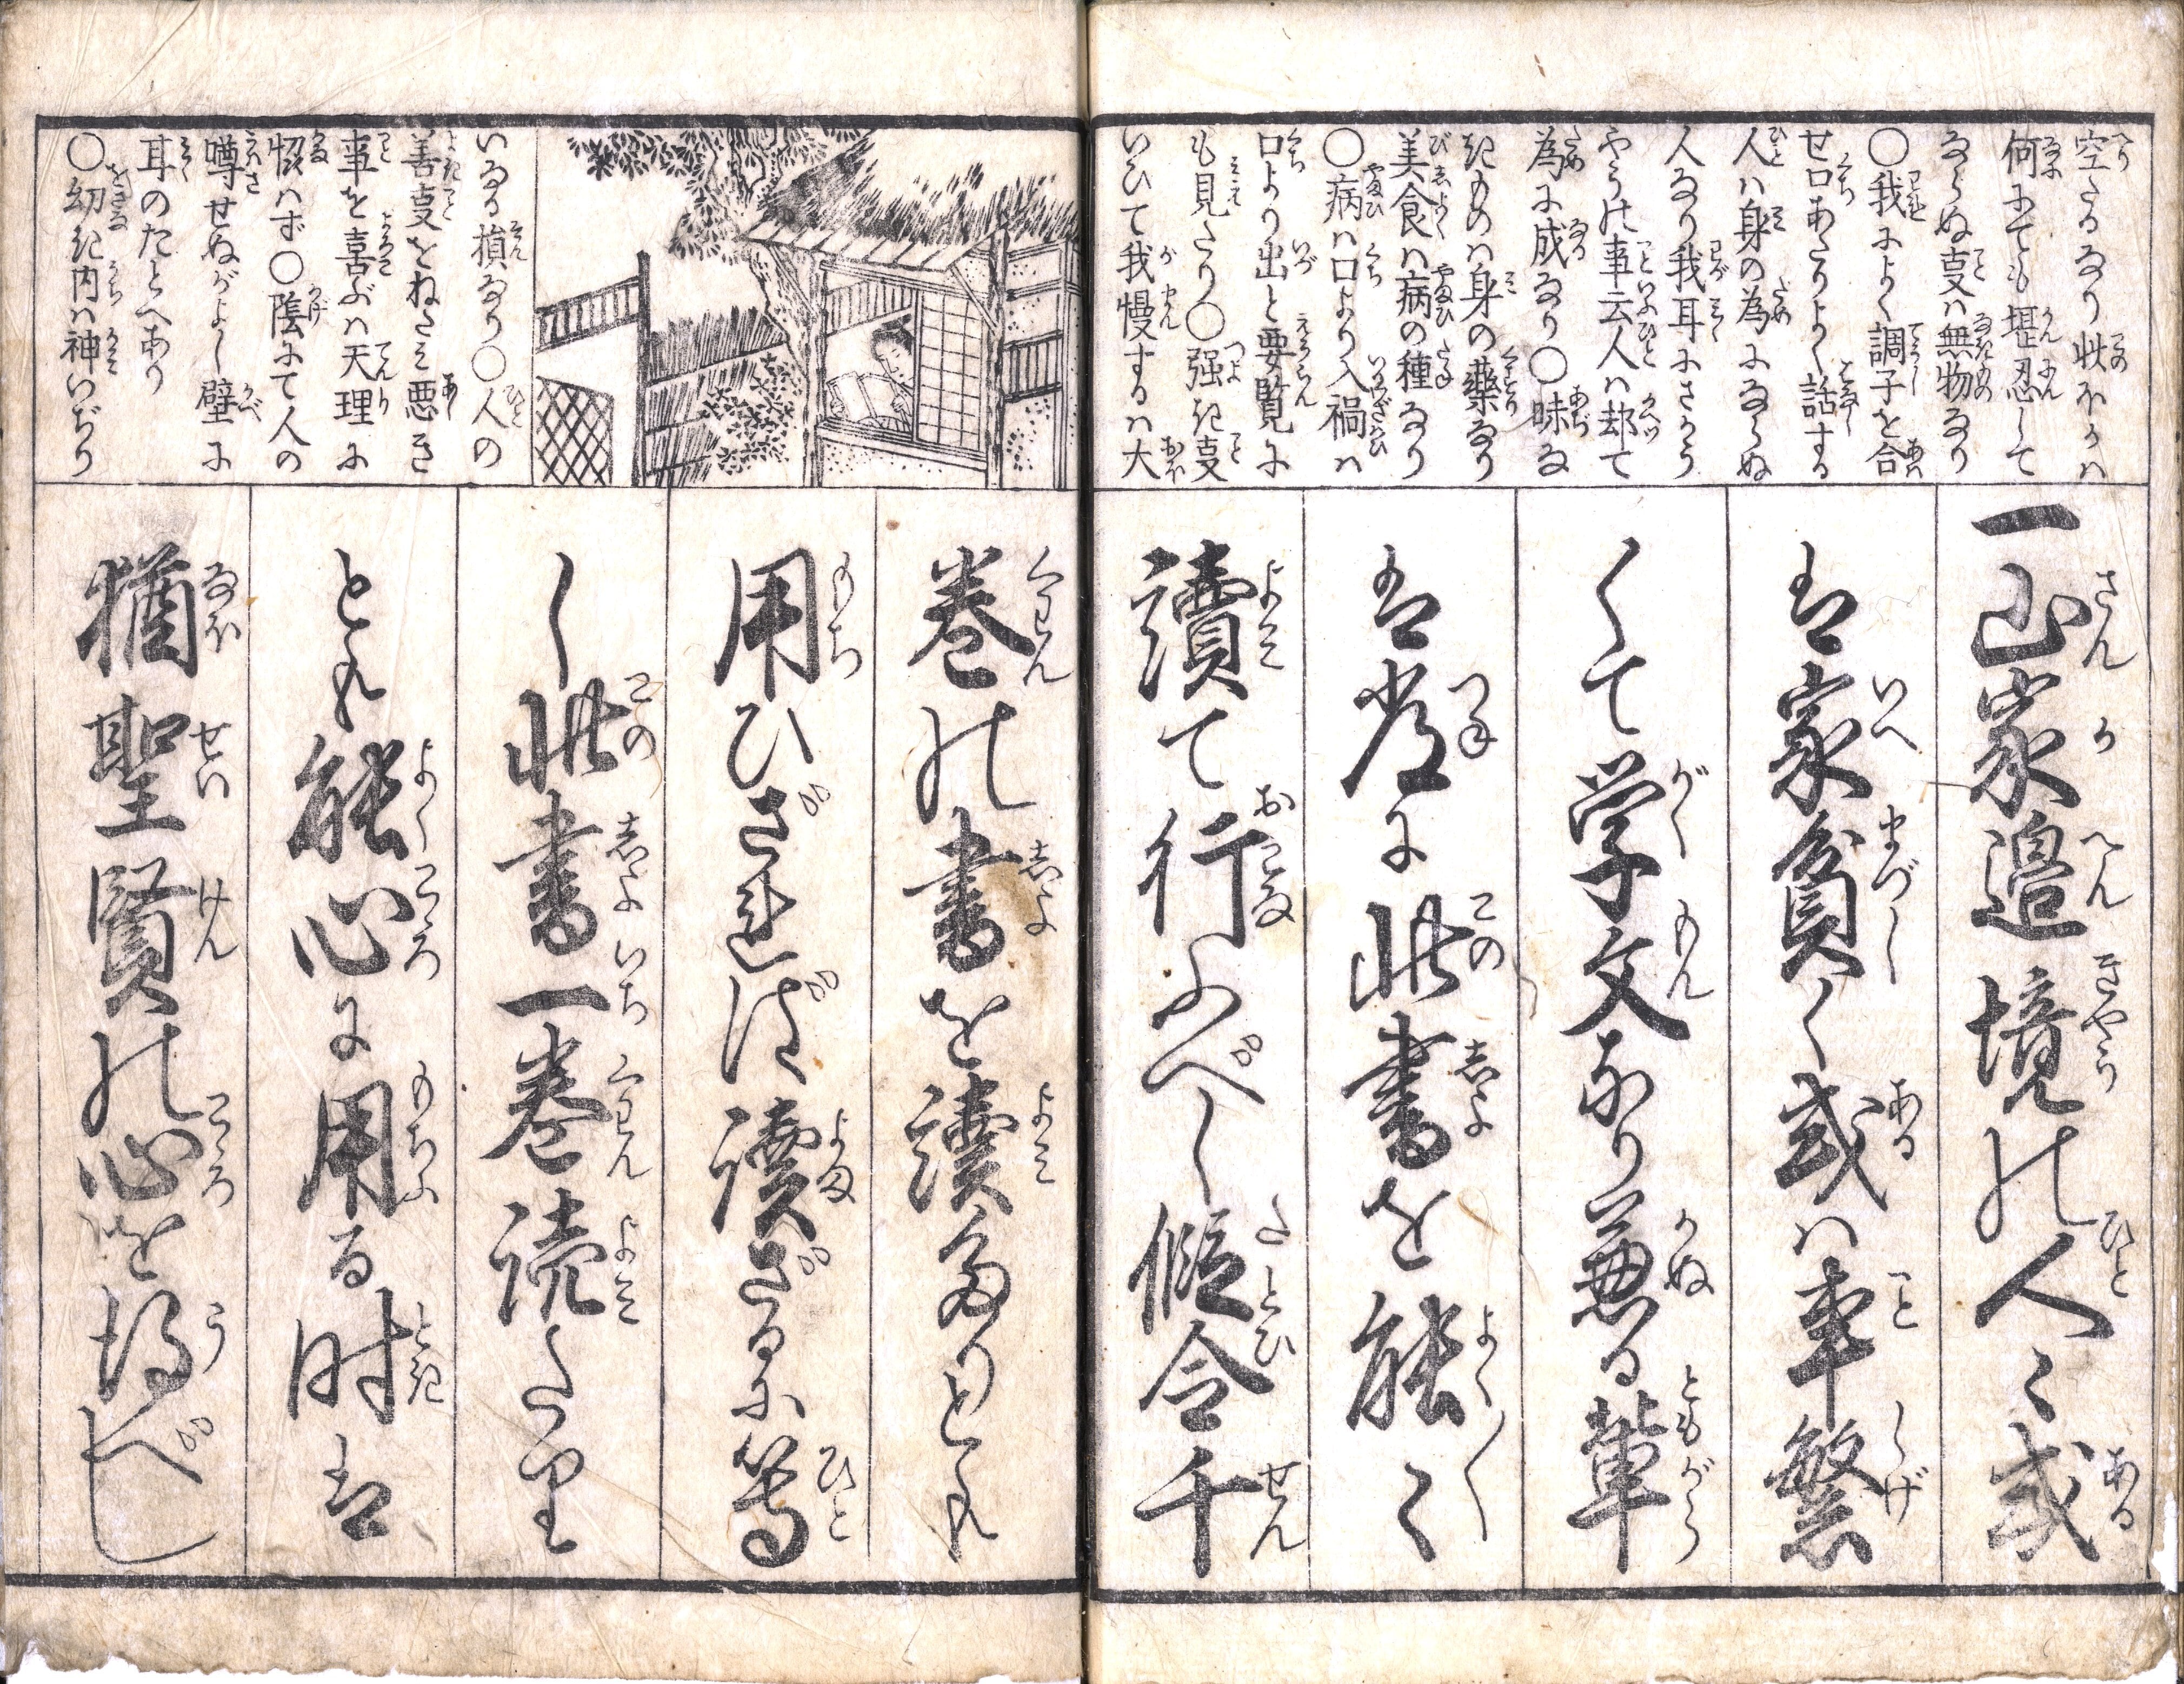 空たるなり此ほかハ
何にても堪忍して
ならぬ事ハ無物なり
〇我によく調子を合
せ口あたりよく話する
人ハ身の為にならぬ
人なり我耳にさかう
やうの事云人ハ却て
為に成なり〇味な
きものハ身の薬なり
美食ハ病の種なり
〇病ハ口より入禍ハ
口より出と要覧に
も見たり〇强き事
いひて我慢するハ大
いなる損なり〇人の
善事をねたミ悪き
事を喜ぶハ天理に
恊ハず〇陰にて人の
噂せぬがよし壁に
耳のたとへあり
〇幼き内ハ神いぢり
一山家邉境の人々或
は家貧く或ハ事繁
くて学文なり兼る輩
は常に此書を能々
讀て行ふべし假令千
巻の書を讀たりとも
用ひざれば讀ざるに等
し此書一巻読たり
とも能心に用る时は
猶聖賢の心を得べし